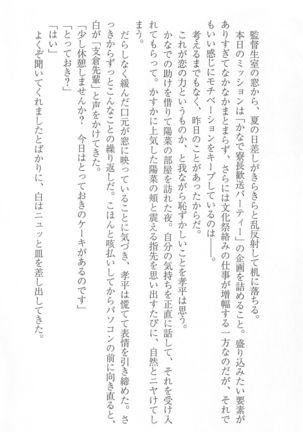 監督生室の窓から、夏の日差しがきらきらと乱反射して机に落ちる。
本日のミッションは「かなで寮長歓送パーティー」の企画を詰めること。盛り込みたい要素が
ありすぎてなかなかまとまらず、さらには文化祭絡みの仕事が増幅する一方なのだが、それで
もいい感じにモチベーションをキープしているのは――。
考えるまでもなく、昨日のことがあったからだ。
これが恋の力というものか、と我ながら恥ずかしいことを孝平は思う。
かなでの助けを借りて陽菜の部屋を訪れた夜。自分の気持ちを正直に話して、それを受け入
れてもらって。かすかに上気した陽菜の頬と震える指先を思い出すたびに、自然とニヤけてし
まう。
だらしなく緩んだ口元が窓に映っていることに気づき、孝平は慌てて表情を引き締めた。さ
っきからずっとこんなことの繰り返しだ。こほんと咳払いしてからパソコンの前に向き直ると、
白が「支倉先輩」と声をかけてきた。
「少し休憩しませんか？　今日はとっておきのケーキがあるのです」
「とっておき？」
「はい」
よくぞ聞いてくれましたとばかりに、白はニュッと皿を差し出してきた。